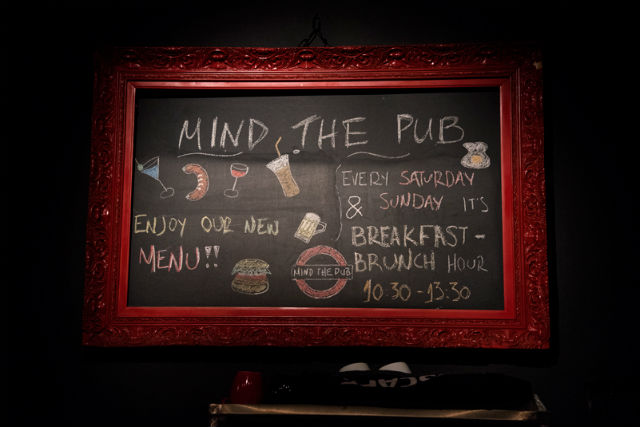 MIND THE PUB
ENJOY OUR NEW
MENU!!
MIND THE PUB
EVERY SATURDAY
& SUNDAY IT'S
BREAKFAST-
BRUNCH HOUR
10:30-13:30